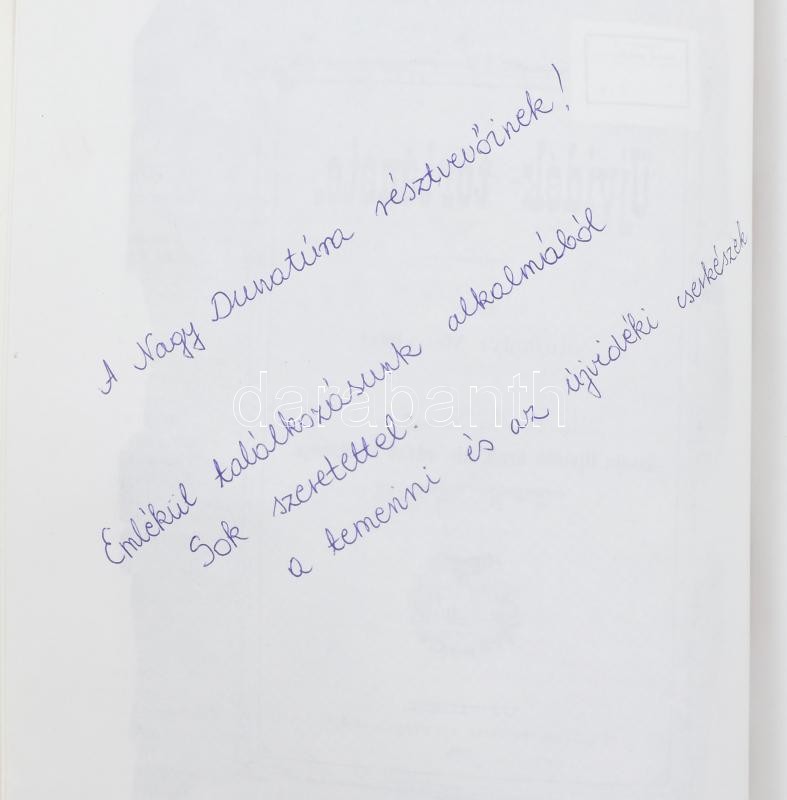 A Nagy Dunatúra résztvevőinek!
Emlékül találkozásunk alkalmából
Sok szeretettel:
a temerini és az újvidéki cserkészek
darabanth